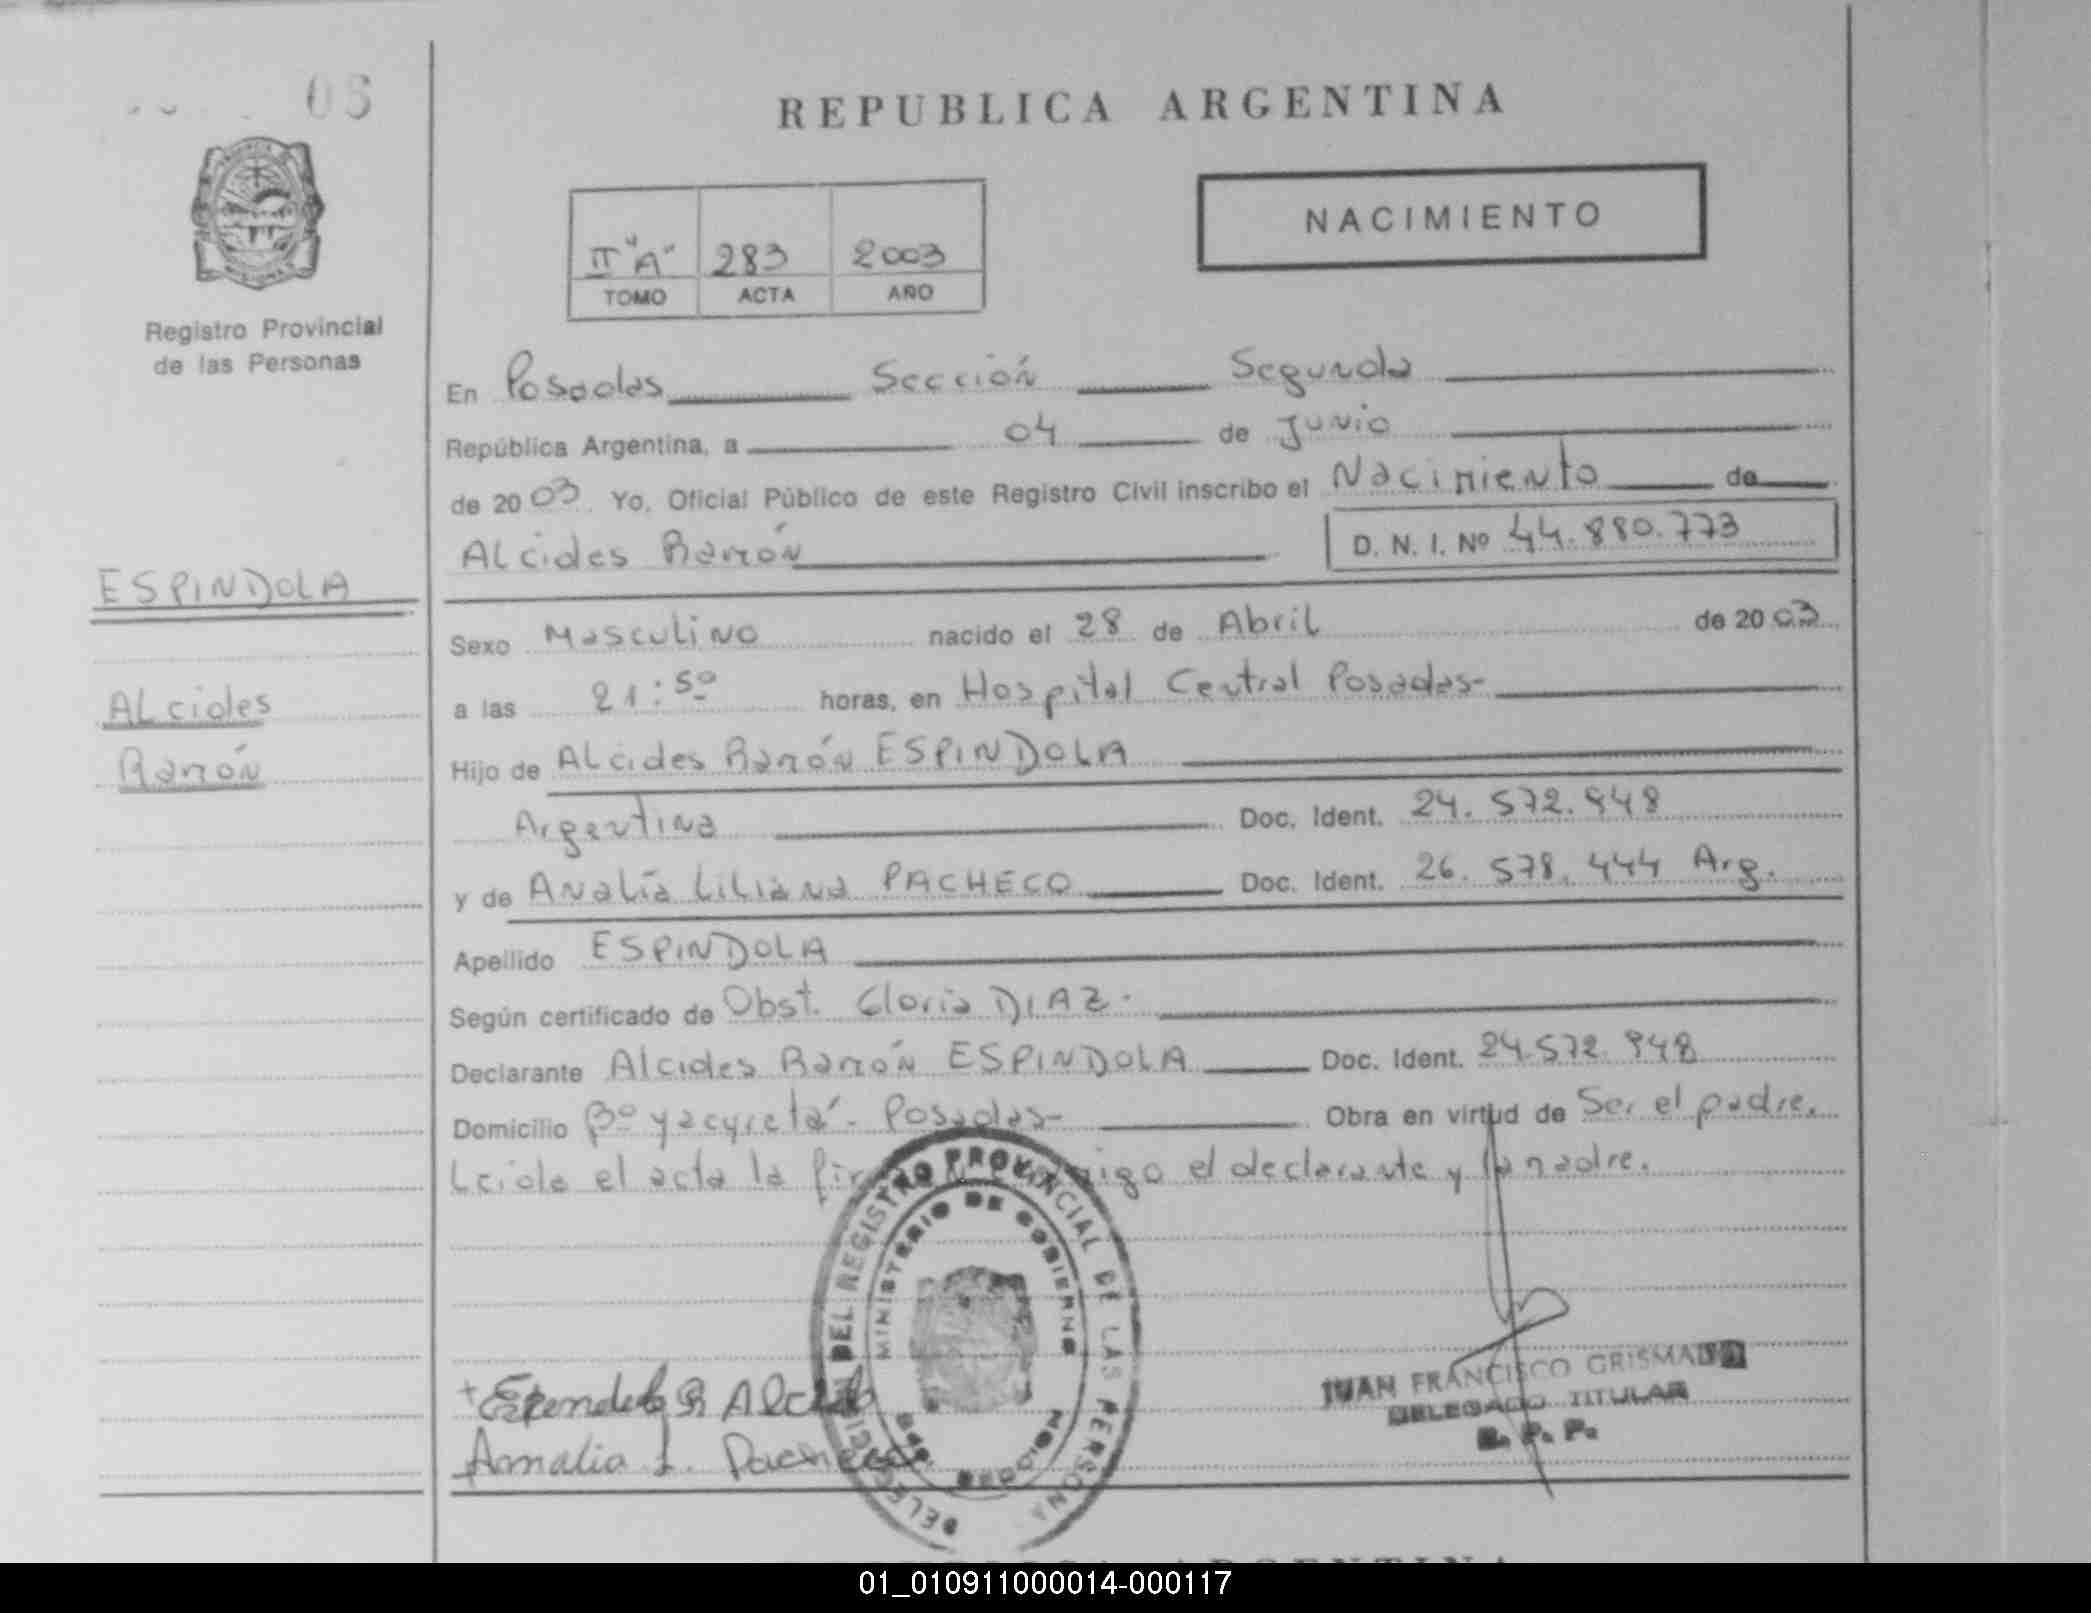 05
REPUBLICA ARGENTINA
NACIMIENTO
II "A" 283 2003
TOMO ACTA AÑO
Registro Provincial
de las Personas
En Posadas Sección Segunda
República Argentina, a 04 de Junio
de 2003. Yo, Oficial Público de este Registro Civil inscribo el Nacimiento de
Alcides Ramón D. N. I. Nº 44.880.773
ESPINDOLA
Alcides
Ramón
Sexo Masculino nacido el 28 de Abril de 2003
a las 21:50 horas, en Hospital Central Posadas-
Hijo de Alcides Ramón ESPINDOLA
Argentina Doc. Ident. 24.572.948
y de Analía Liliana PACHECO Doc. Ident. 26.578.444 Arg.
Apellido ESPINDOLA
Según certificado de Obst. Gloria DIAZ.
Declarante Alcides Ramón ESPINDOLA Doc. Ident. 24.572.948
Domicilio Bº Yacyretá - Posadas- Obra en virtud de Ser el padre.
Leida el acta la el declarante y la madre.
DEL REGISTRO PROVINCIAL DE LAS PERSONA
MINISTERIO DE GOBIERNO
JUAN FRANCISCO GRISMADO
DELEGADO TITULAR
R. P. P.
Analia L. Pacheco
REPUBLICA ARGENTINA
01_010911000014-000117